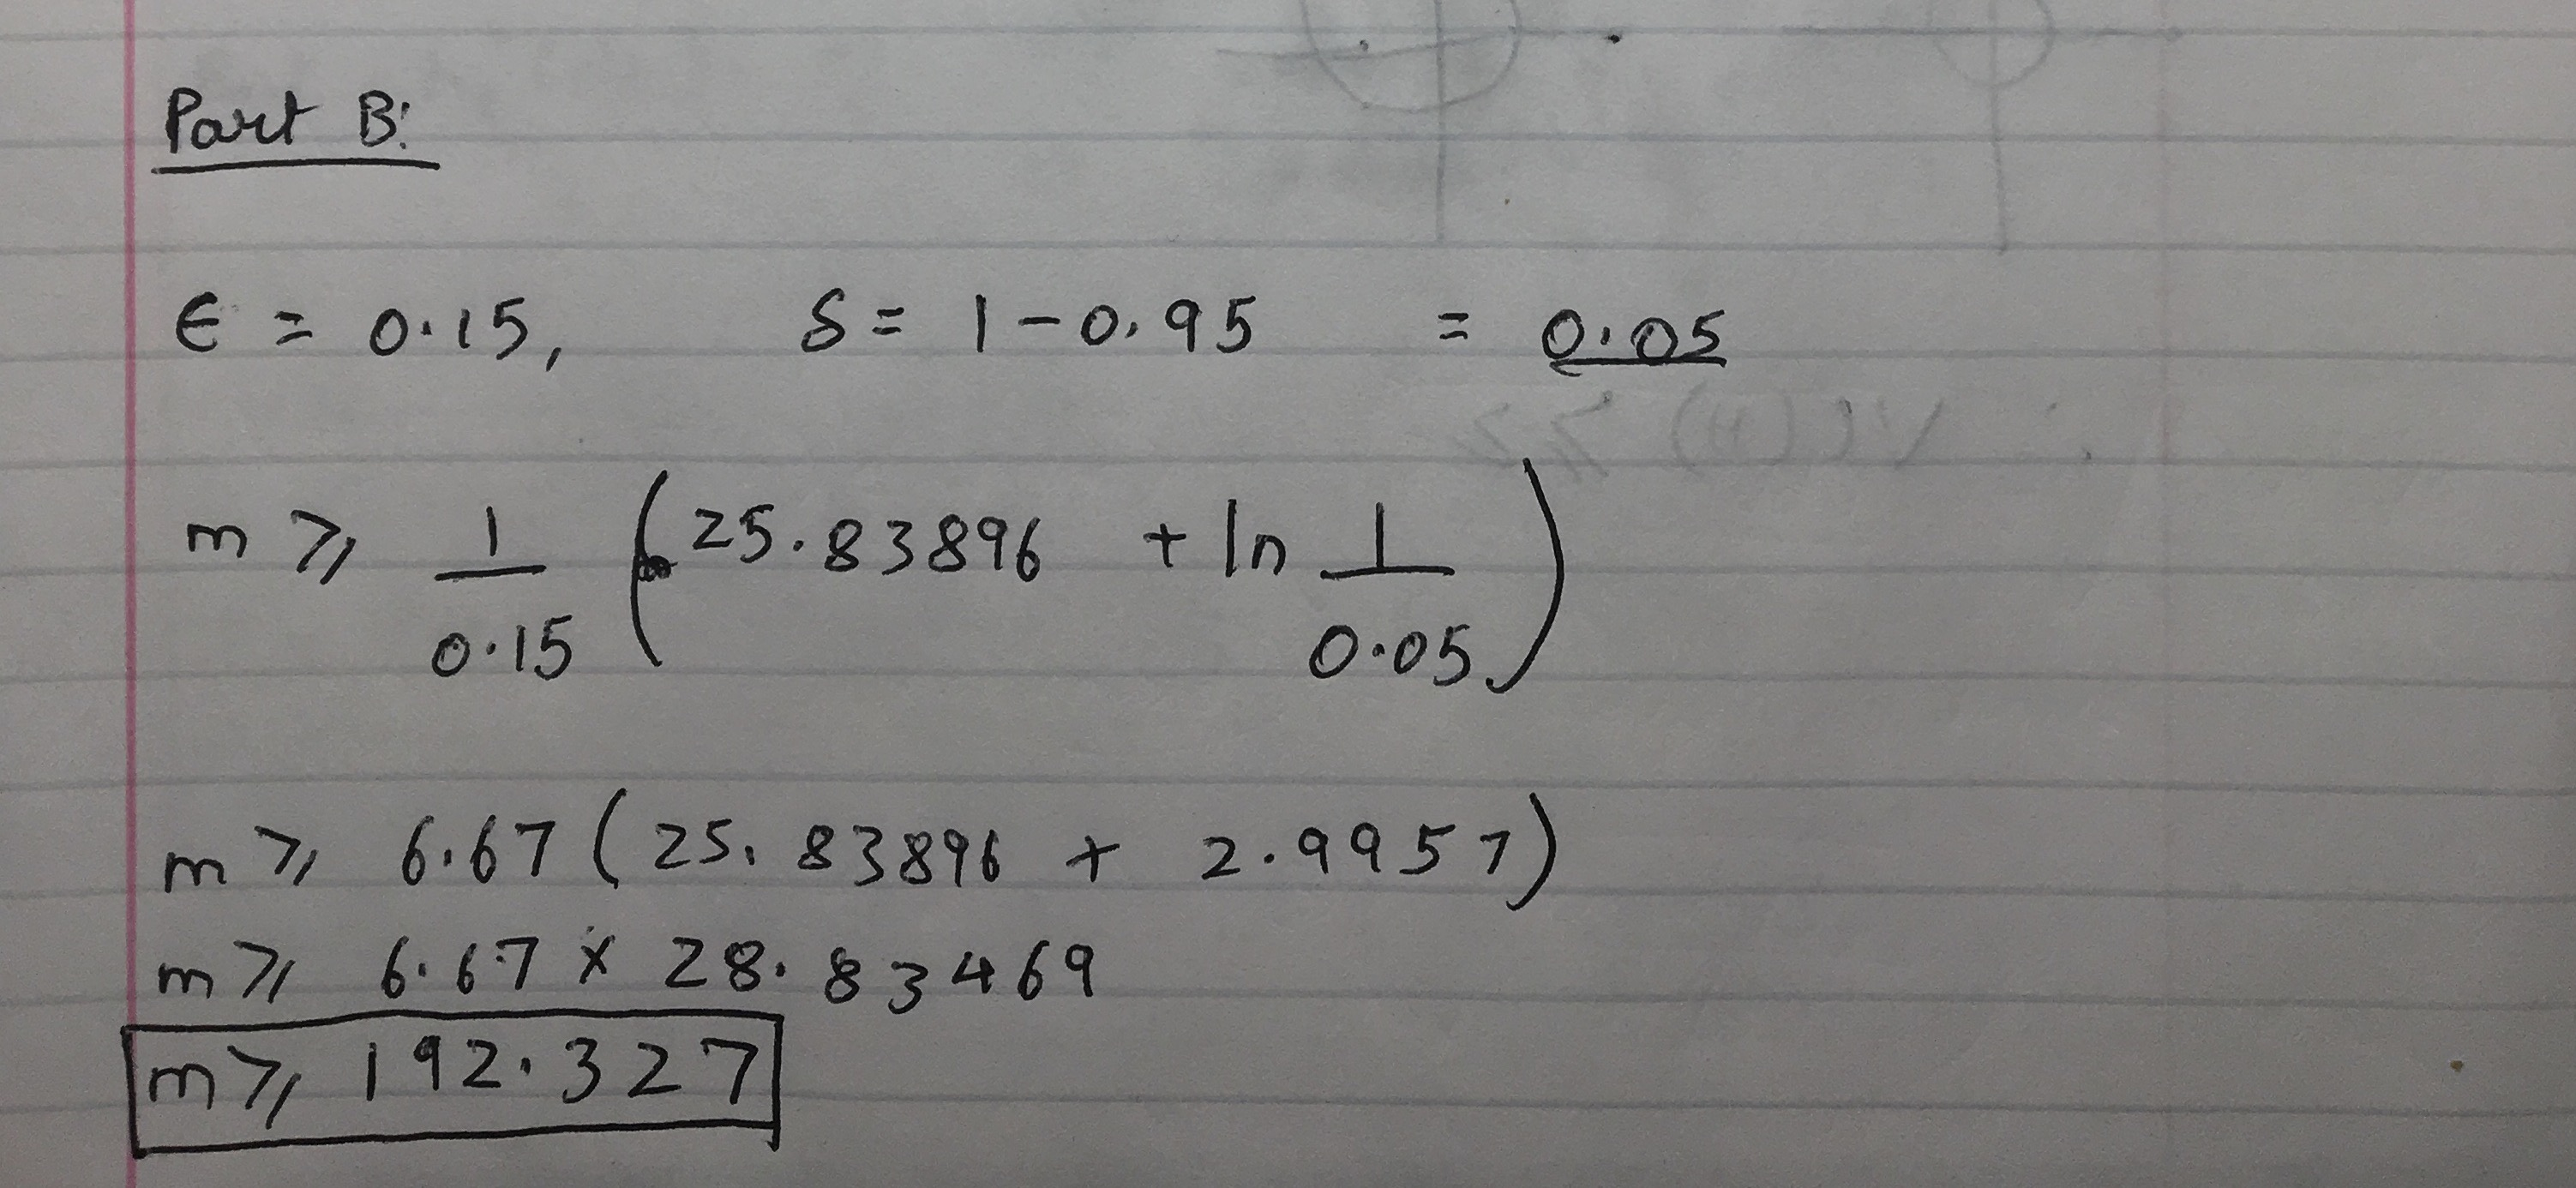 Part B:
ϵ = 0.15, δ = 1 - 0.95 = 0.05
m ⩾ 1/0.15 (25.83896 + ln 1/0.05)
m ⩾ 6.67 (25.83896 + 2.9957)
m ⩾ 6.67 × 28.83469
m ⩾ 192.327